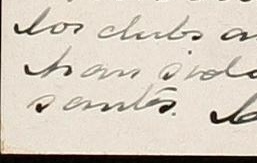 los clubs a
han sido
santes.